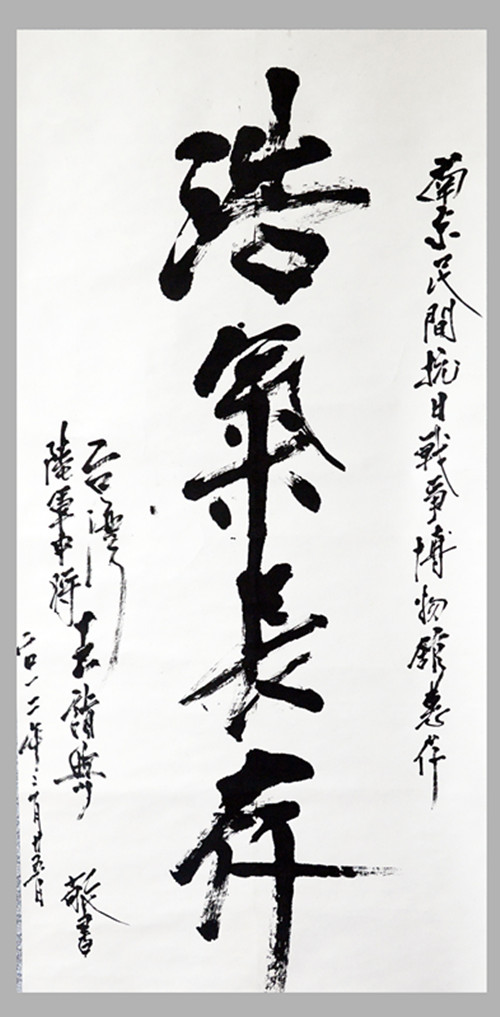 南京民間抗日戰爭博物館惠存
浩氣長存
台灣
陸軍中將
敬書
二〇一二年三月廿五日